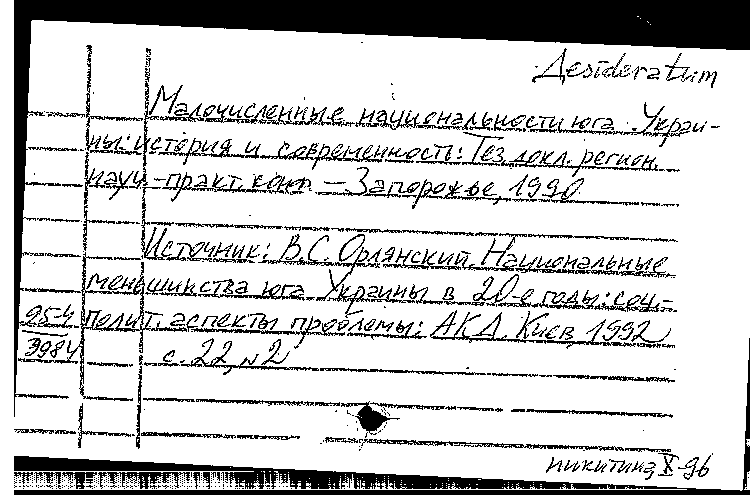 Desideratum
Малочисленные национальности юга Украи-
ны: история и современность: Тез. докл. регион.
науч-практ. конф. — Запорожье, 1990
Источник: В.С. Орлянский. Национальные
меньшинства юга Украины в 20-е годы: соц.-
полит. аспекты проблемы: АКД. Киев, 1992
с. 22, №2
95-4
3984
никитина, X-96